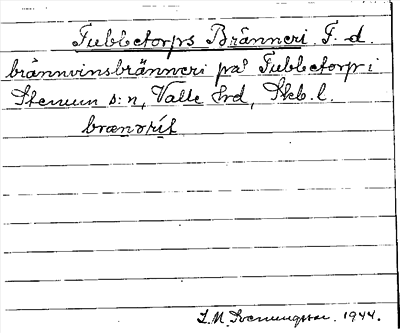 Fubbetorps Bränneri. F. d.
brännvinsbränneri på Fubbetorp i
Stenum s:n, Valle hrd, Skb. l.
brænərít
L. M. Svenungsson. 1944.